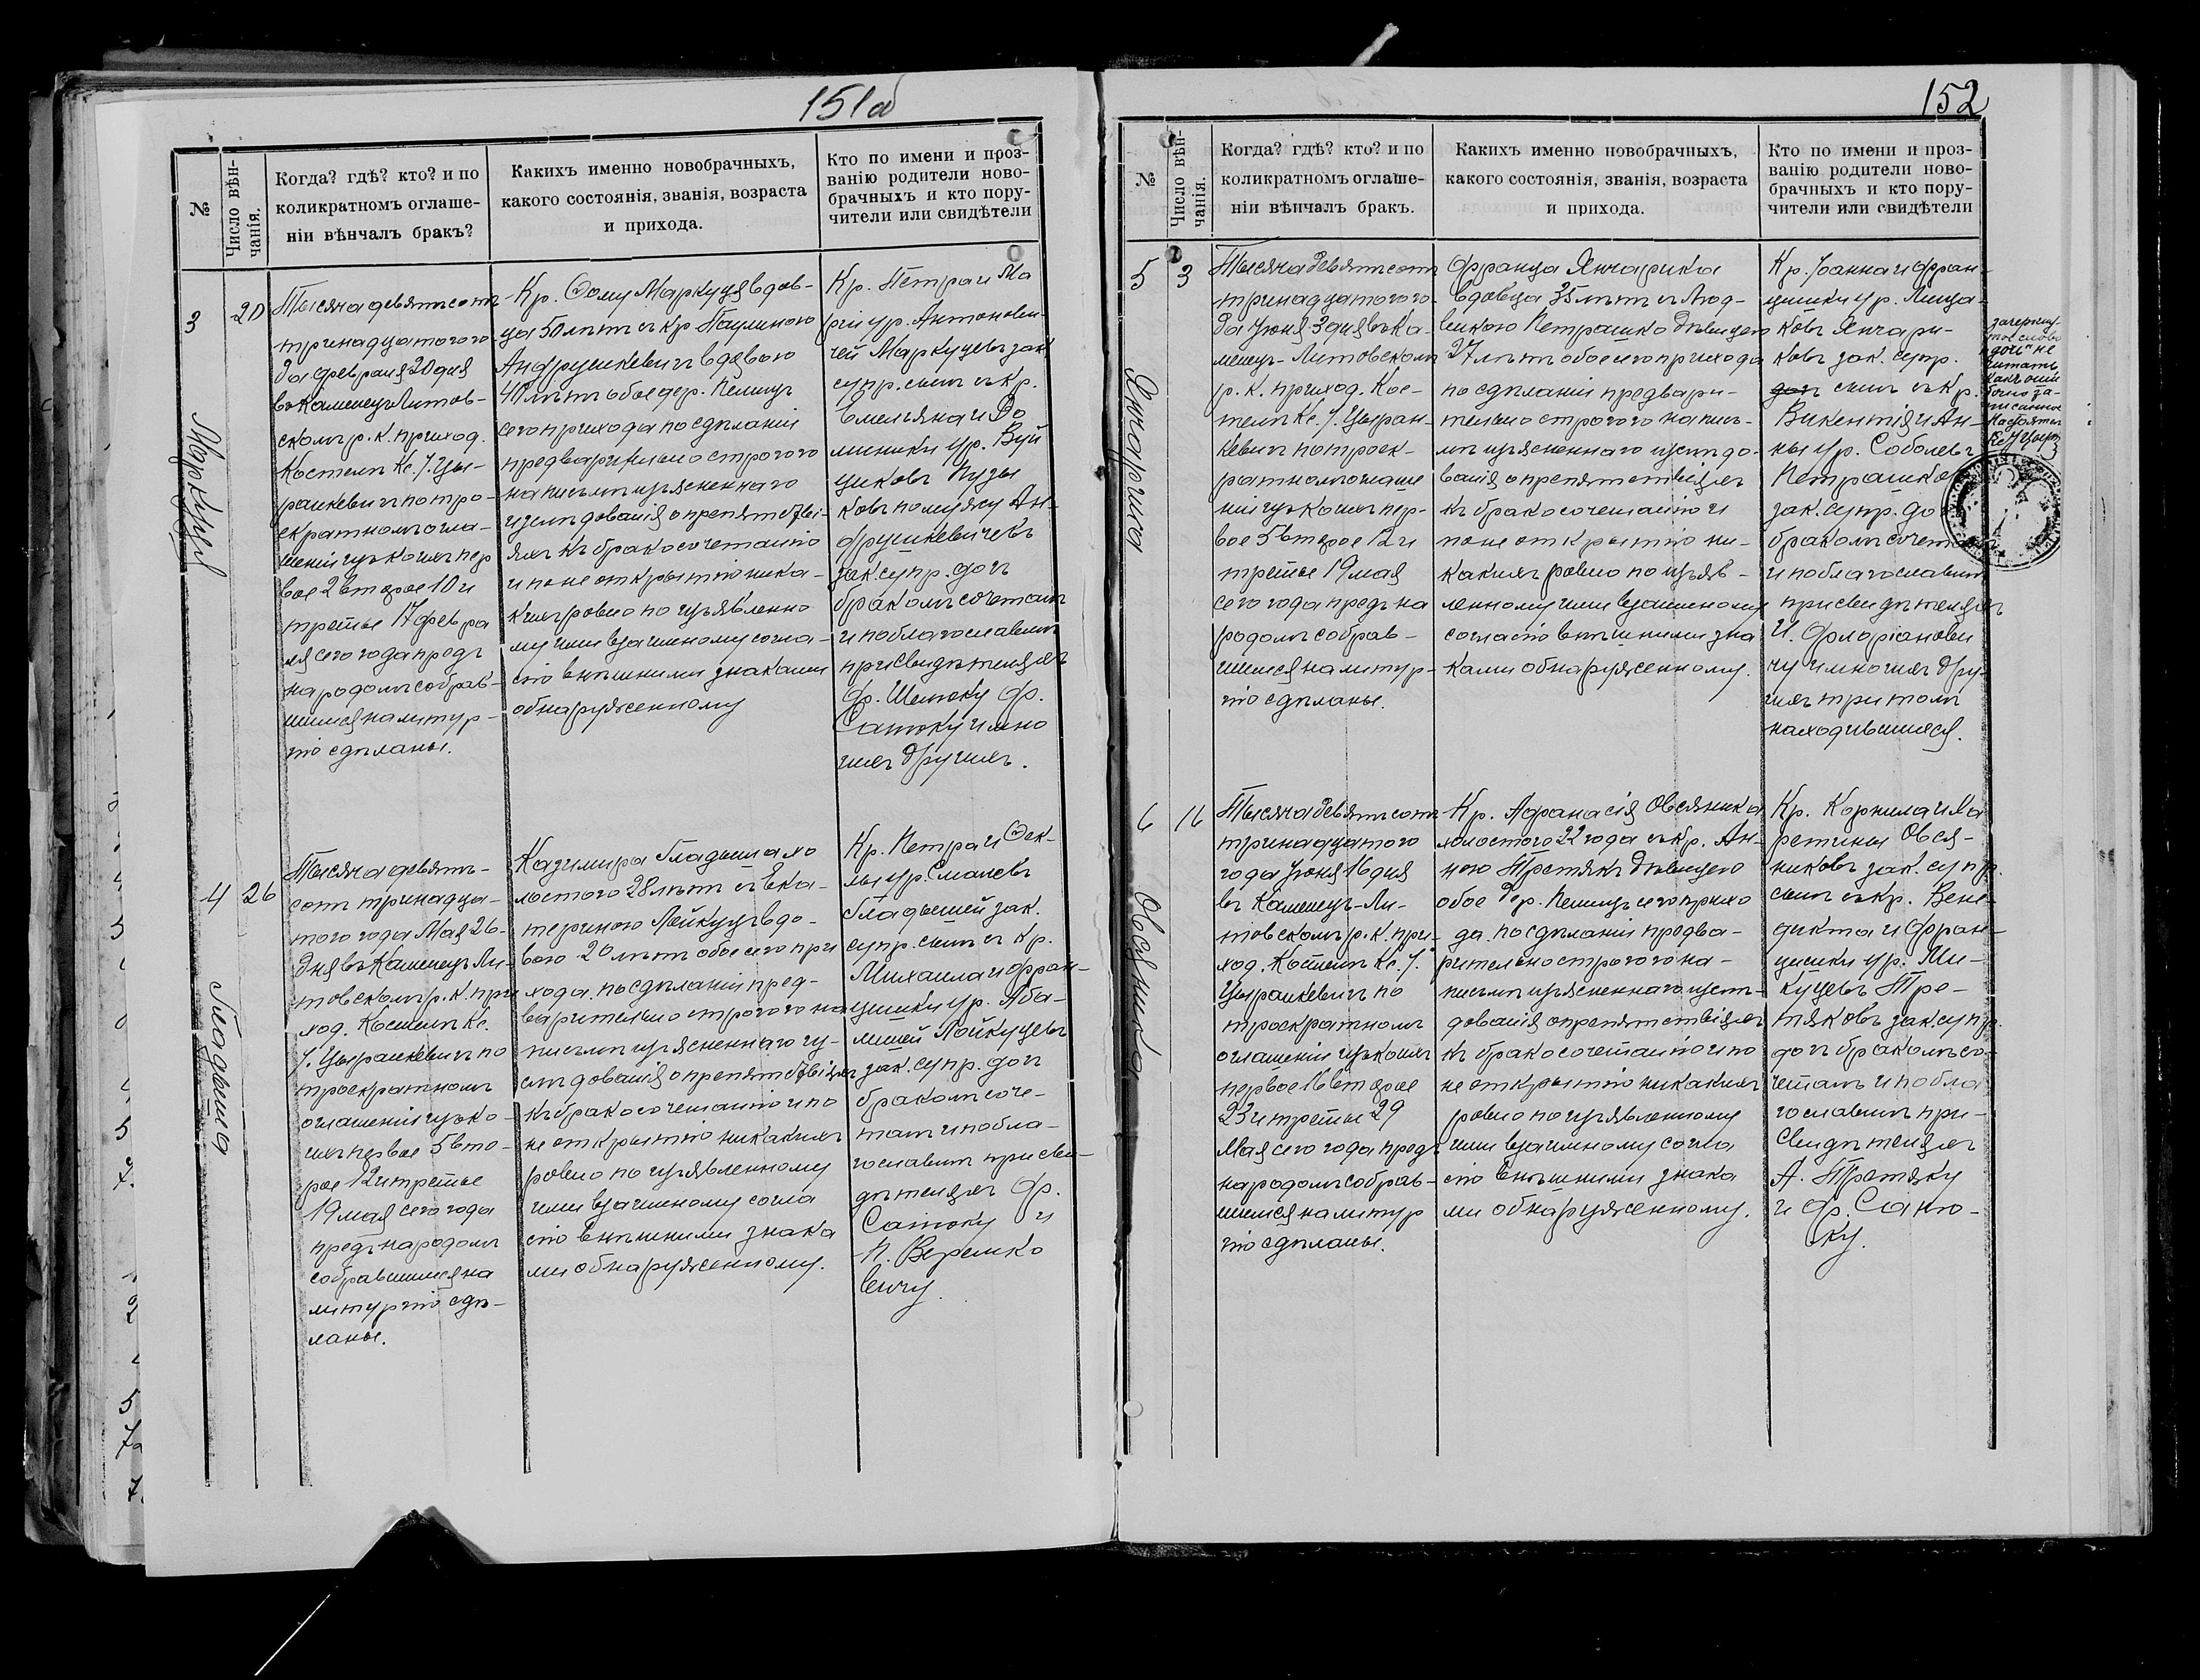 151об
№
Число вѣн-
чанія.
Когда? гдѣ? кто? и по
коликратномъ оглаше-
ніи вѣнчалъ бракъ?
Какихъ именно новобрачныхъ,
какого состоянія, званія, возраста
и прихода.
Кто по имени и проз-
ванію родители ново-
брачныхъ и кто пору-
чители или свидѣтели
3
20
Маркуцъ
Тысяча девятьсотъ
тринадцатого го-
да февраля 20 дня
въ Каменецъ Литов-
скомъ р. к. приход.
Костелѣ Кс. І. Цы-
ранкевичъ по тро-
екратномъ огла-
шеніи изъ коихъ пер
вое 2 второе 10 и
третье 17 февра
ля сего года предъ
народомъ собрав-
шимся на литур-
гію сдѣланы.
Кр. Ѳому Маркуця вдов-
ца 50 лѣтъ съ кр Паулиною
Андрушкевичъ вдовою
40 лѣтъ обое дер. Пелищъ
сего прихода по сдѣланіи
предварительно строгого
на письмѣ изъясненнаго
изслѣдованія о препятстві-
яхъ къ бракосочетанію
и по не открытію ника-
кихъ ровно по изъявленно
му ими взаимному согла-
сію внѣшними знаками
обнаруженному
Кр. Петра и Ма
ріи ур. Антонови-
чей Маркуцевъ зак
супр. сынъ съ Кр.
Емельяна и До
миники ур. Вуй
циковъ Пузы
ковъ по мужу Ан-
друшкевичевъ
зак. супр. дочъ
бракомъ сочеталъ
и поблагославилъ
при свидѣтеляхъ
Ф. Шепску Ф.
Саюку и мно
гихъ другихъ.
4
26
Гладышъ
Тысяча девять-
сотъ тринадца-
того года Мая 26-
дня въ Каменецъ Ли-
товскомъ р. к. при
ход. Костелѣ Кс.
І. Цыранкевичъ по
троекратномъ
оглашеніи изъ ко-
ихъ первое 5 вто-
рое 12 и третье
19 мая сего года
предъ народомъ
собравшимся на
литургію сдѣ-
ланы.
Казимира Гладыша хо
лостого 28 лѣтъ съ Ека-
териною Лойкуцъ вдо-
вою 20 лѣтъ обое сего при
хода. по сдѣланіи пред-
варительно строгого на
письмѣ изъясненнаго из-
слѣдованія о препятствіяхъ
къ бракосочетанію и по
не открытію никакихъ
ровно по изъявленному
ими взаимному согла
сію внѣшними знака
ми обнаруженному.
Кр. Петра и Ѳек-
лы ур. Смалевъ
Гладышей зак.
супр. сынъ съ Кр.
Михаила и Фран-
цишки ур. Аба-
лишей Лойкуцевъ
зак. супр. дочъ
бракомъ соче-
талъ и побла-
гославилъ при сви-
дѣтеляхъ Ф.
Саюку и
П. Веремко
вичу.
152
№
Число вѣн-
чанія.
Когда? гдѣ? кто? и по
коликратномъ оглаше-
ніи вѣнчалъ бракъ.
Какихъ именно новобрачныхъ,
какого состоянія, званія, возраста
и прихода.
Кто по имени и проз-
ванію родители ново-
брачныхъ и кто пору-
чители или свидѣтели
5
3
Янчарика
Тысяча девятьсотъ
тринадцатого го-
да Іюня 3 дня въ Ка-
менецъ-Литовскомъ
р. к. приход. Кос-
телѣ Кс. І. Цыран-
кевичъ по троек-
ратномъ оглаше
ніи изъ коихъ пер-
вое 5 второе 12 и
третье 19 мая
сего года предъ на
родомъ собрав-
шимся на литур-
гію сдѣланы.
Франца Янчарика
вдовца 35 лѣтъ съ Люд-
викою Петрашко дѣвицею
27 лѣтъ обое сего прихода
по сдѣланіи предвари-
тельно строгого на пись-
мѣ изъясненнаго изслѣдо-
ванія о препятствіяхъ
къ бракосочетанію и
по не открытію ни-
какихъ ровно по изъяв-
ленному ими взаимному
согласію внѣшними зна
ками обнаруженному.
Кр. Іоанна и Фран-
цишки ур. Лица-
ковъ Янчари-
ковъ зак. супр.
дочъ сынъ съ Кр.
Викентія и Ан-
ны ур. Соболевъ
Петрашков
зак. супр. до
бракомъ сочеталъ
и поблагославилъ
при свидѣтеляхъ
И. Флоріанови
чу и многихъ дру-
гихъ при томъ
находившихся.
зачеркну-
тое слово
„дочъ" не
читать
какъ оши
бочно за-
писанное
Настоятель
Кс. І Цыр
6
16
Овсяника
Тысяча девятьсотъ
тринадцатого
года Іюня 16 дня
въ Каменецъ-Ли-
товскомъ р. к. при-
ход. Костелѣ Кс. І.
Цыранкевичъ по
троекратномъ
оглашеніи изъ коихъ
первое 16 второе
23 и третье 29
Мая сего года предъ
народомъ собрав-
шимся на литур
гію сдѣланы.
Кр. Афанасія Овсяника
холостого 22 года съ кр. Ан-
ною Третякъ дѣвицею
обое дер. Пелищъ сего прихо
да. по сдѣланіи предва-
рительно строгого на-
письмѣ изъясненнаго изслѣ-
дованія о препятствіяхъ
къ бракосочетанію и по
не открытію никакихъ
ровно по изъявленному
ими взаимному согла
сію внѣшними знака
ми обнаруженному.
Кр. Корнила и Ма
ретины Овся-
никовъ зак. супр.
сынъ съ Кр. Вене-
дикта и Фран-
цишки ур. Ми-
куцевъ Тре-
тяковъ зак. супр.
дочъ бракомъ со-
четалъ и побла
гославилъ при-
свидѣтеляхъ
А. Третяку
и Ф. Саню-
ку.